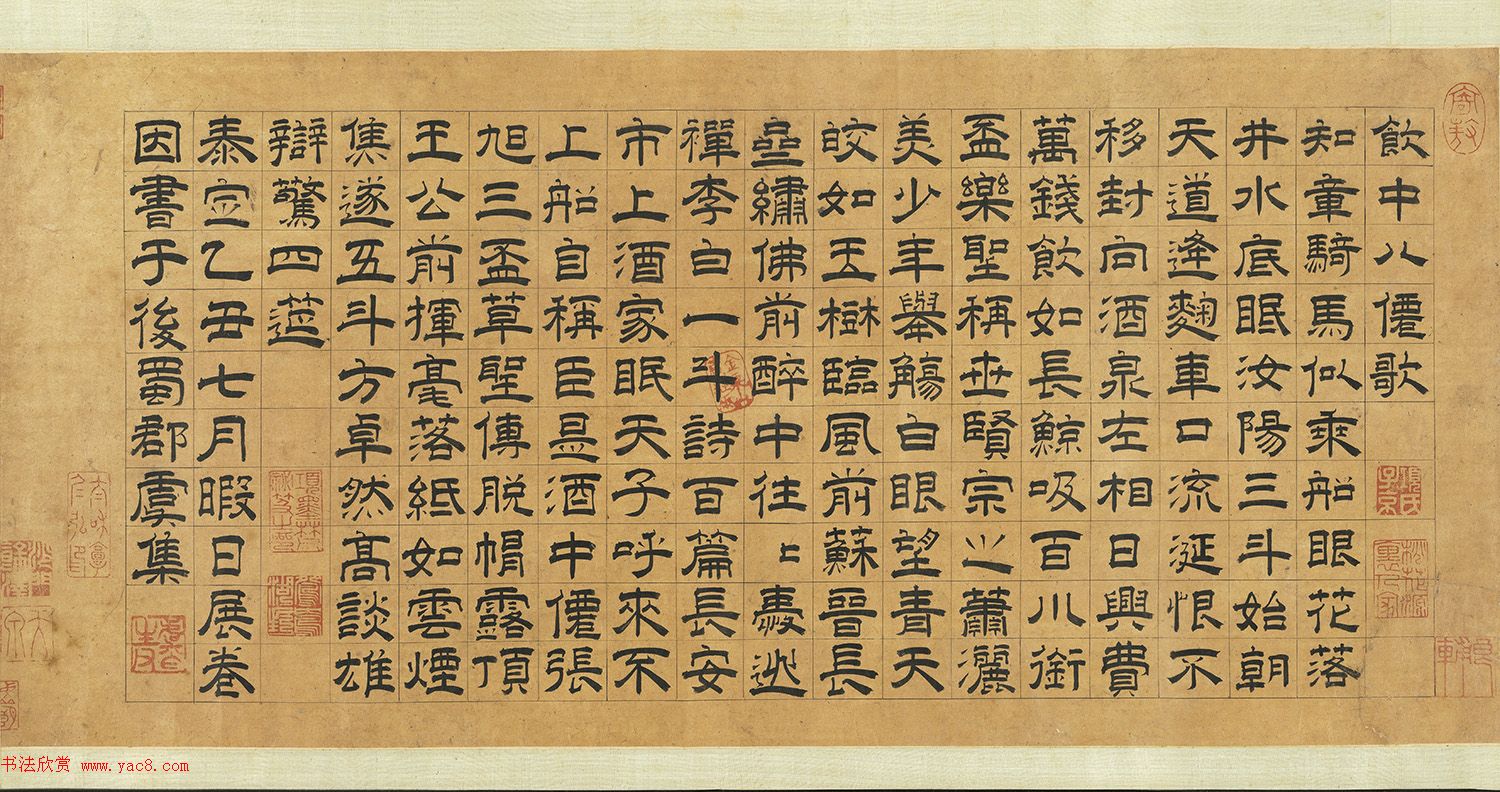 飲中八僊歌
知章騎馬似乘船眼花落
井水底眠汝陽三斗始朝
天道逢麴車口流涎恨不
移封向酒泉左相日興費
萬錢飲如長鯨吸百川銜
盃樂聖稱世賢宗之蕭灑
美少年舉觴白眼望青天
皎如玉樹臨風前蘇晉長
齋繡佛前醉中往往愛逃
禪李白一斗詩百篇長安
市上酒家眠天子呼來不
上船自稱臣是酒中僊張
旭三盃草聖傳脫帽露頂
王公前揮毫落紙如雲煙
焦遂五斗方卓然高談雄
辯驚四筵
泰定乙丑七月暇日展卷
因書于後蜀郡虞集
項氏子京
书法欣赏 www.yac8.com